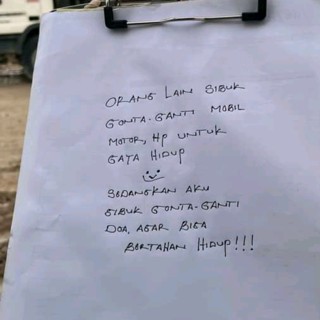 ORANG LAIN SIBUK
GONTA-GANTI MOBIL
MOTOR, HP UNTUK
GAYA HIDUP
SEDANGKAN AKU
SIBUK GONTA-GANTI
DOA, AGAR BISA
BERTAHAN HIDUP!!!